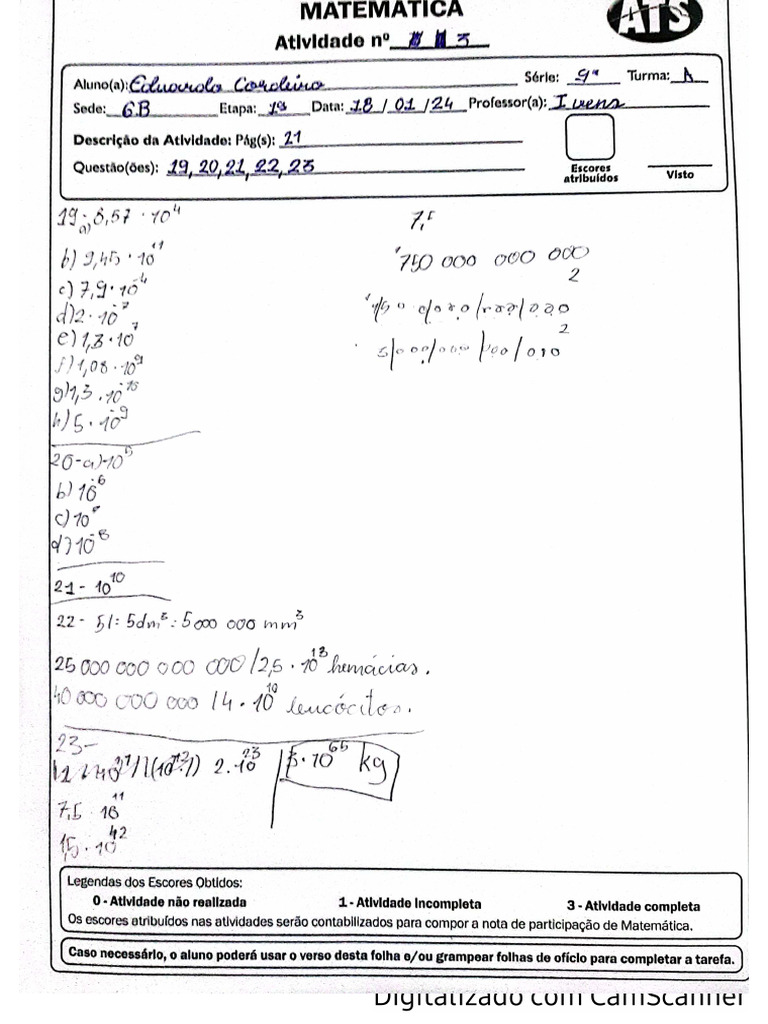 MATEMÁTICA
ATS
Atividade nº 3
Aluno(a): Eduarda Cordeiro Série: 9ª Turma: A
Sede: GB Etapa: 1ª Data: 18/01/24 Professor(a): Ivens
Descrição da Atividade: Pág(s): 21
Questão(ões): 19, 20, 21, 22, 23
Escores atribuídos
Visto
19- a) 8,57 · 10⁴
b) 9,45 · 10¹¹
c) 7,9 · 10⁻⁴
d) 2 · 10⁻⁷
e) 1,3 · 10⁷
f) 1,08 · 10⁹
g) 1,3 · 10⁻¹⁵
h) 5 · 10⁻⁹
7,5
750 000 000 000
2
20- a) 10⁵
b) 10⁻⁶
c) 10⁹
d) 10⁻⁸
21- 10¹⁰
22- 5l = 5dm³ = 5 000 000 mm³
25 000 000 000 000 / 2,5 · 10¹³ hemácias.
40 000 000 000 / 4 · 10¹⁰ leucócitos.
23-
2 · 10²³
· 10⁶⁵ kg
7,5 · 10¹¹
1,5 · 10⁴²
Legendas dos Escores Obtidos:
0 - Atividade não realizada 1 - Atividade Incompleta 3 - Atividade completa
Os escores atribuídos nas atividades serão contabilizados para compor a nota de participação de Matemática.
Caso necessário, o aluno poderá usar o verso desta folha e/ou grampear folhas de ofício para completar a tarefa.
Digitalizado com CamScanner